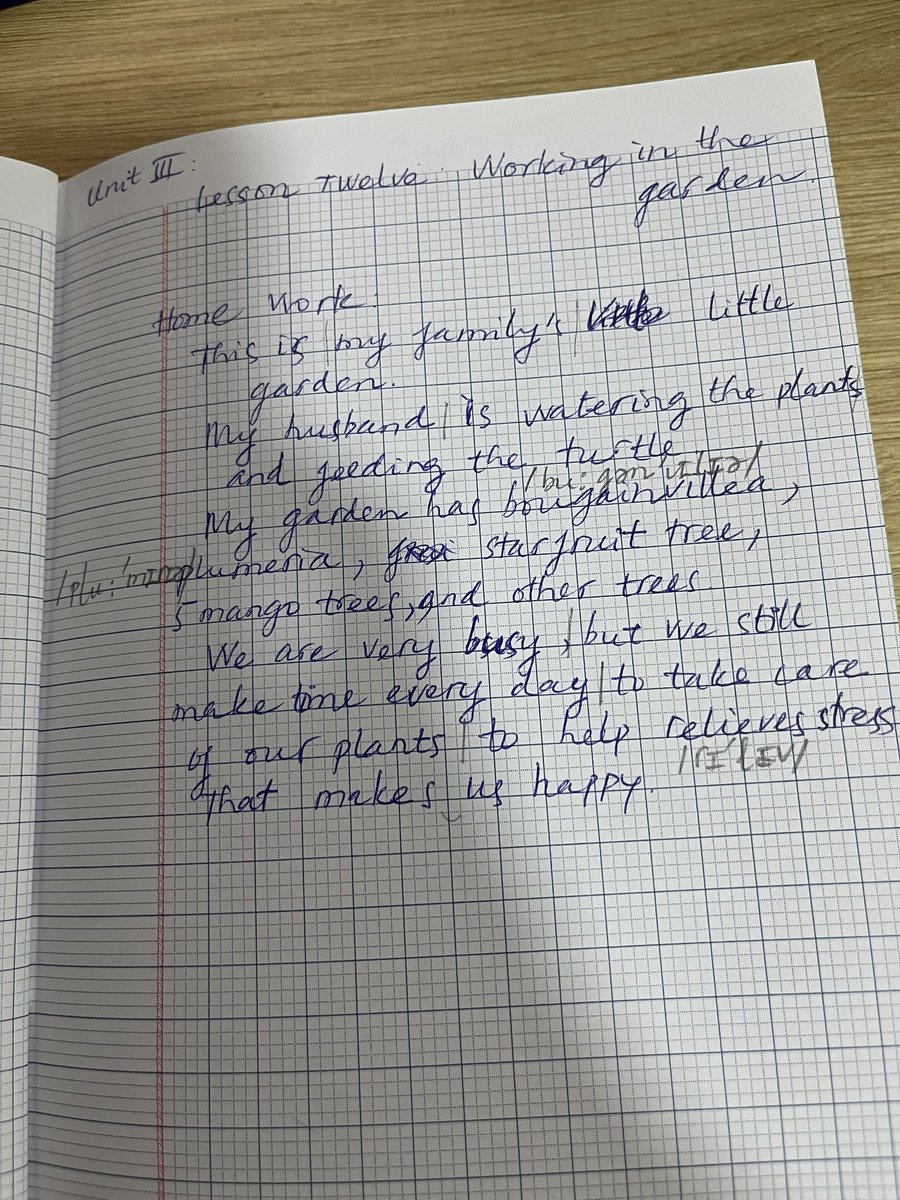 Unit III:
Lesson Twelve: Working in the
garden.
Home Work
This is my family's little
garden.
My husband is watering the plants
and feeding the turtle
/bu:gən'vɪlɪə/
My garden has bougainvillea,
plumeria, starfruit tree,
5 mango trees, and other trees
We are very busy, but we still
make time every day to take care
of our plants to help relieves stress
/rɪ'lɪv/
That makes us happy.